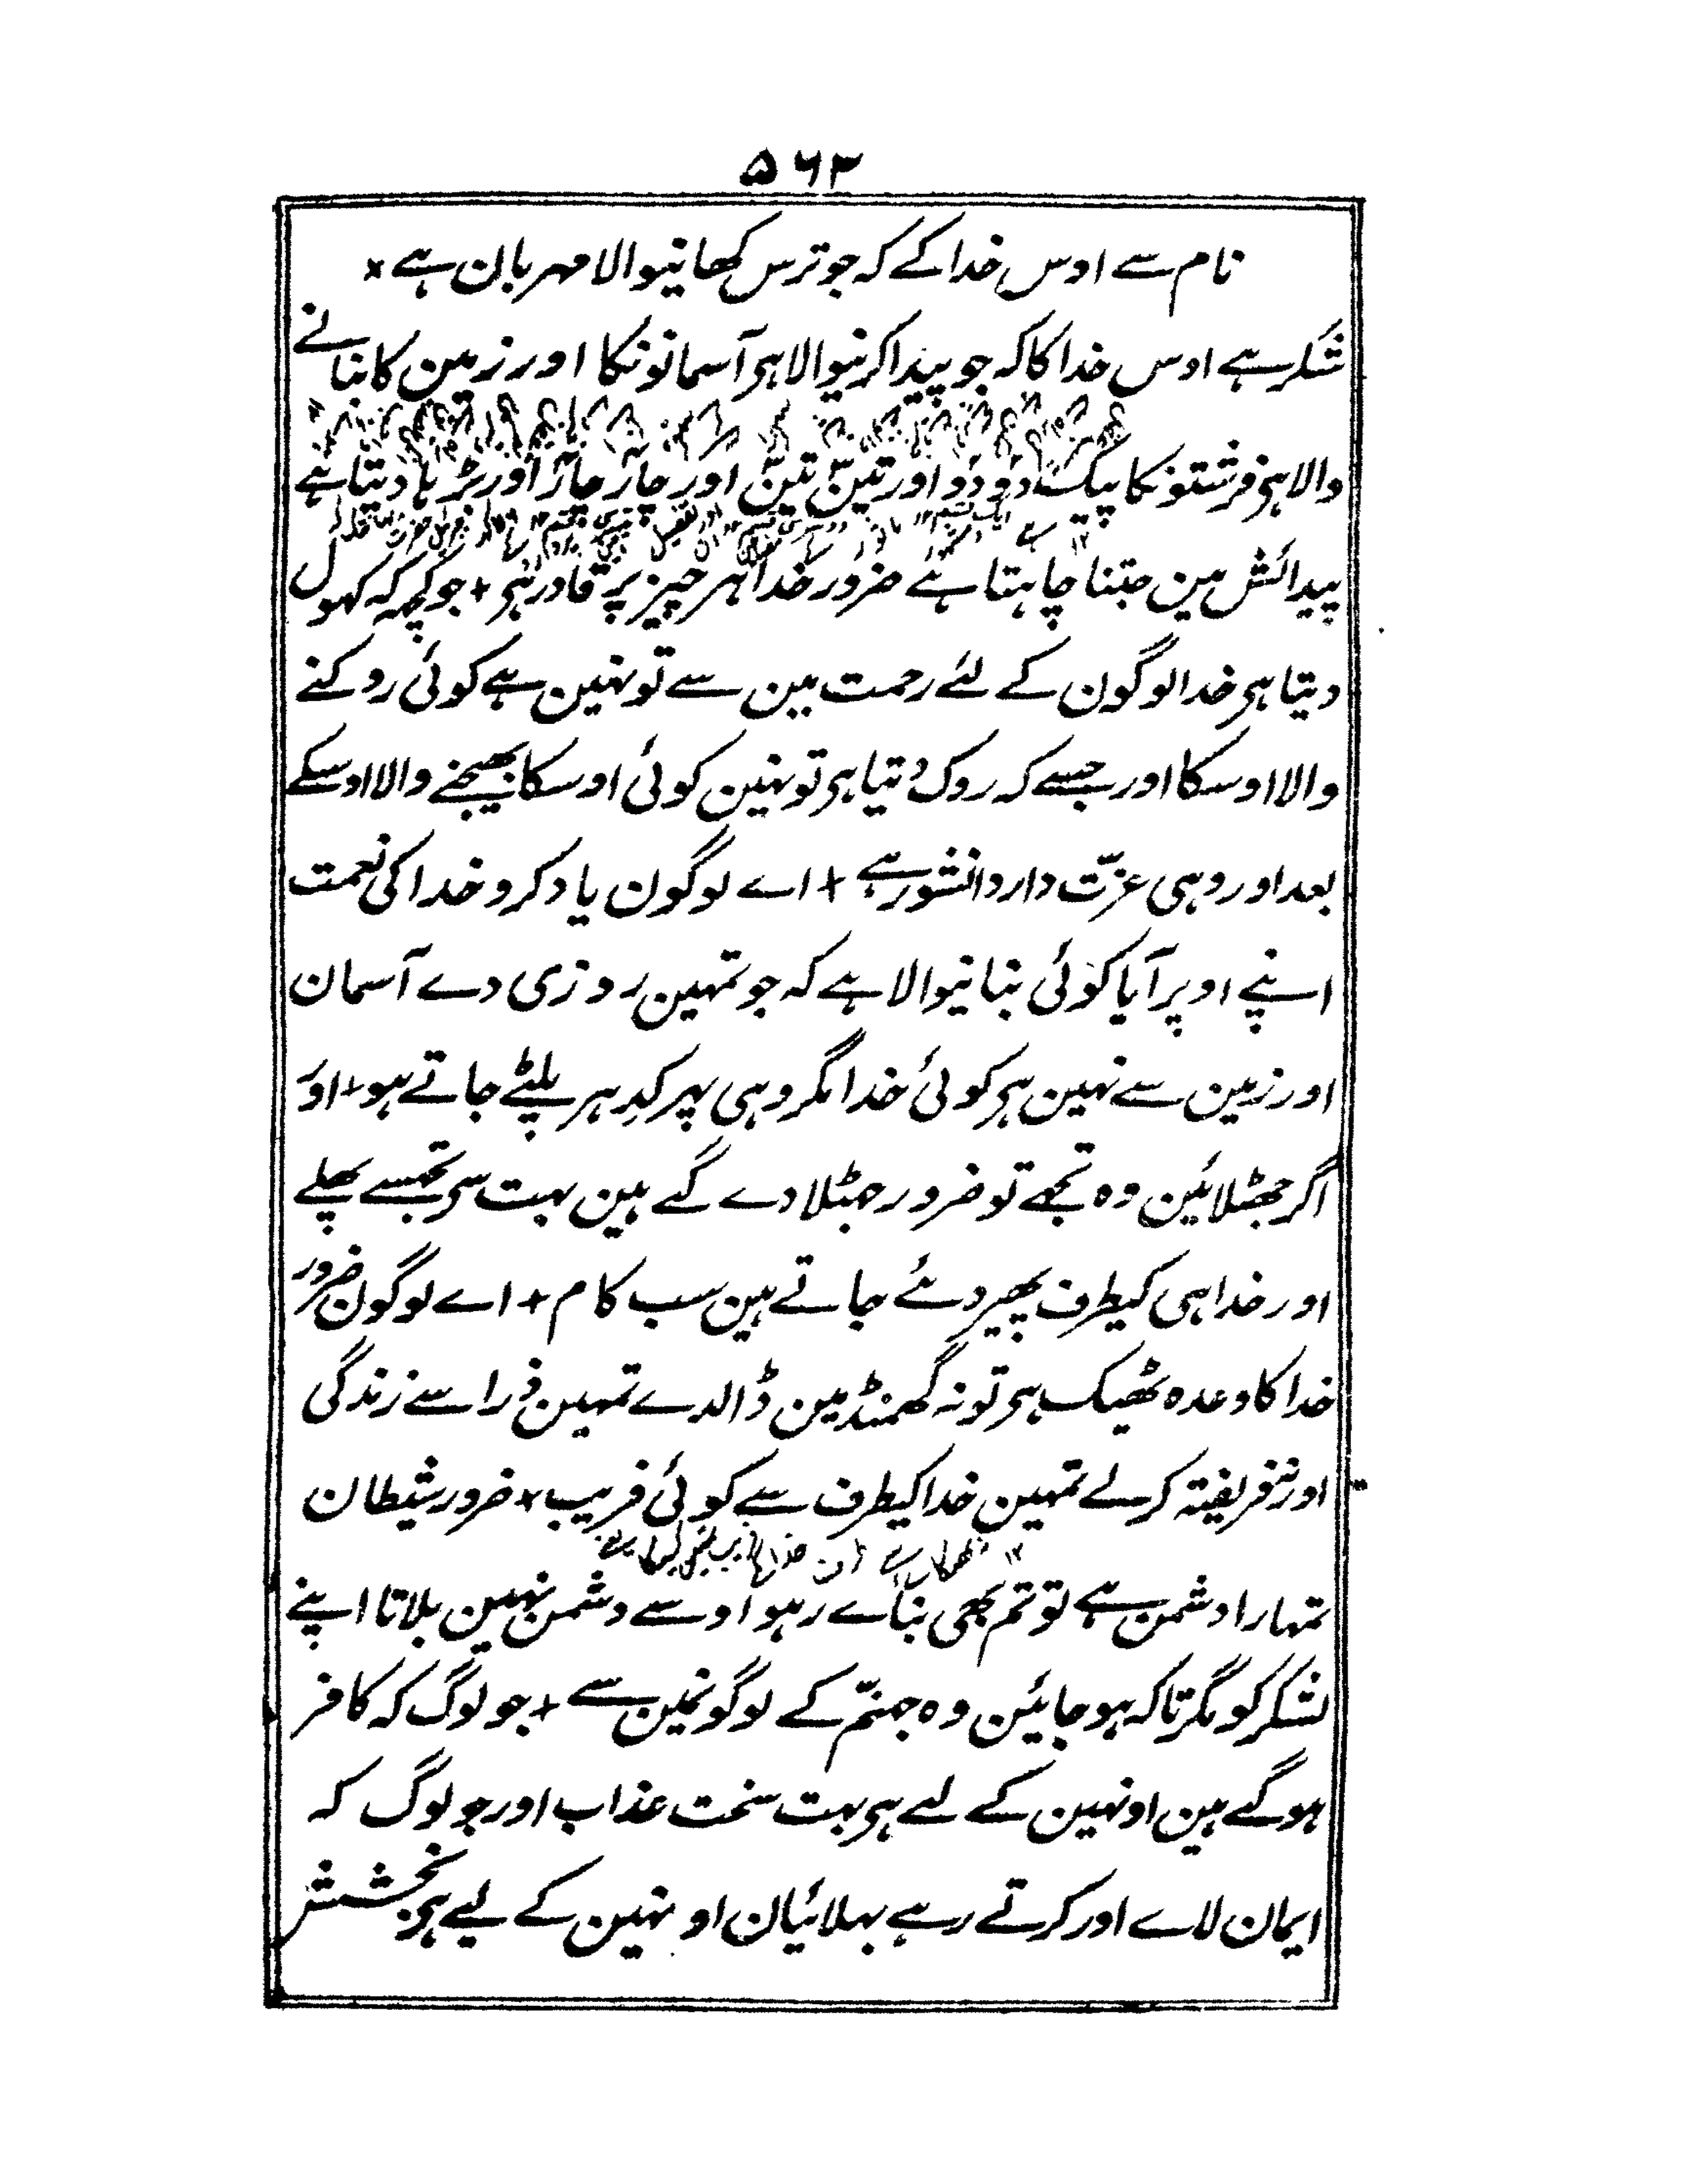 ۵۶۳
نام سے اوس خدا کے کہ جو ترس کھانیوالا مہربان ہے ×
شکر ہے اوس خدا کا کہ جو پیدا کرنیوالا ہی آسمانونکا اور زمین کا بنانے
والا ہی فرشتونکا پیک دو دو اور تین تین اور چار چار اور بڑہا دیتا ہے
پیدائش مین جتنا چاہتا ہے ضرور خدا ہر چیز پر قادر ہی + جو کچہہ کہ کہول
دیتا ہی خدا لوگون کے لئے رحمت مین سے تو نہین ہے کوئی روکنے
والا اوسکا اور جسے کہ روک دیتا ہی تو نہین کوئی اوسکا بھیجنے والا اوسکے
بعد اور وہی عزّت دار دانشور ہے + اے لوگون یاد کرو خدا کی نعمت
اپنے اوپر آیا کوئی بنانیوالا ہے کہ جو تمہین روزی دے آسمان
اور زمین سے نہین ہی کوئی خدا مگر وہی پہر کدِہر پلٹے جاتے ہو + اور
اگر جھٹلائین وہ تجھے تو ضرور جہٹلا دے گے ہین بہت سی تجھسے پھلے
اور خدا ہی کیطرف پھیر دئے جاتے ہین سب کام + اے لوگون ضرور
خدا کا وعدہ ٹھیک ہی تو نہ گھمنڈ مین ڈالدے تمہین ذرا سے زندگی
اور نہ فریفتہ کرلے تمہین خدا کیطرف سے کوئی فریب × ضرور شیطان
تمہارا دشمن ہے تو تم بھی بنائے رہو اوسے دشمن نہین بلاتا اپنے
لشکر کو مگر تاکہ ہو جایئن وہ جہنّم کے لوگونمین سے + جو لوگ کہ کافر
ہو گے ہین اونہین کے لے ہی بہت سخت عذاب اور جو لوگ کہ
ایمان لاے اور کرتے رہے بہلائیان اونہین کے لیے ہی بخشش